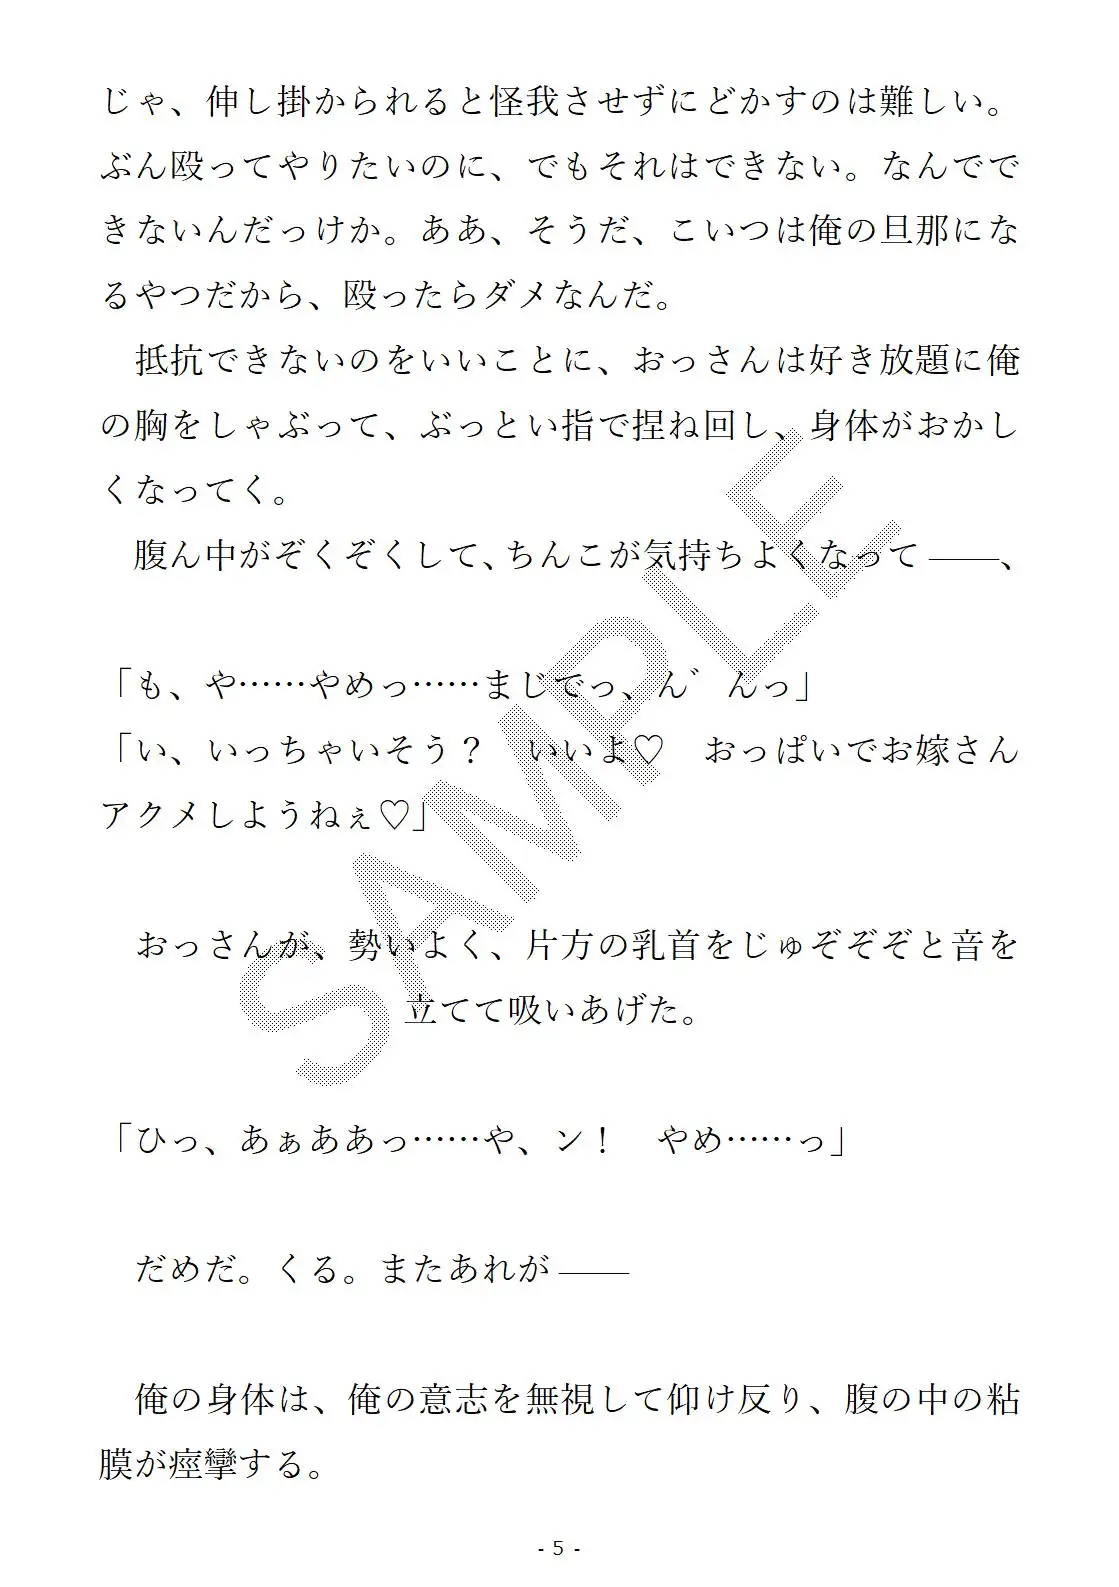 じゃ、伸し掛かられると怪我させずにどかすのは難しい。
ぶん殴ってやりたいのに、でもそれはできない。なんでで
きないんだっけか。ああ、そうだ、こいつは俺の旦那にな
るやつだから、殴ったらダメなんだ。
　抵抗できないのをいいことに、おっさんは好き放題に俺
の胸をしゃぶって、ぶっとい指で捏ね回し、身体がおかし
くなってく。
　腹ん中がぞくぞくして、ちんこが気持ちよくなって――、
「も、や……やめっ……まじでっ、ん゛んっ」
「い、いっちゃいそう？　いいよ♡　おっぱいでお嫁さん
アクメしようねぇ♡」
　おっさんが、勢いよく、片方の乳首をじゅぞぞぞと音を
立てて吸いあげた。
「ひっ、あぁああっ……や、ン！　やめ……っ」
　だめだ。くる。またあれが――
　俺の身体は、俺の意志を無視して仰け反り、腹の中の粘
膜が痙攣する。
- 5 -
SAMPLE